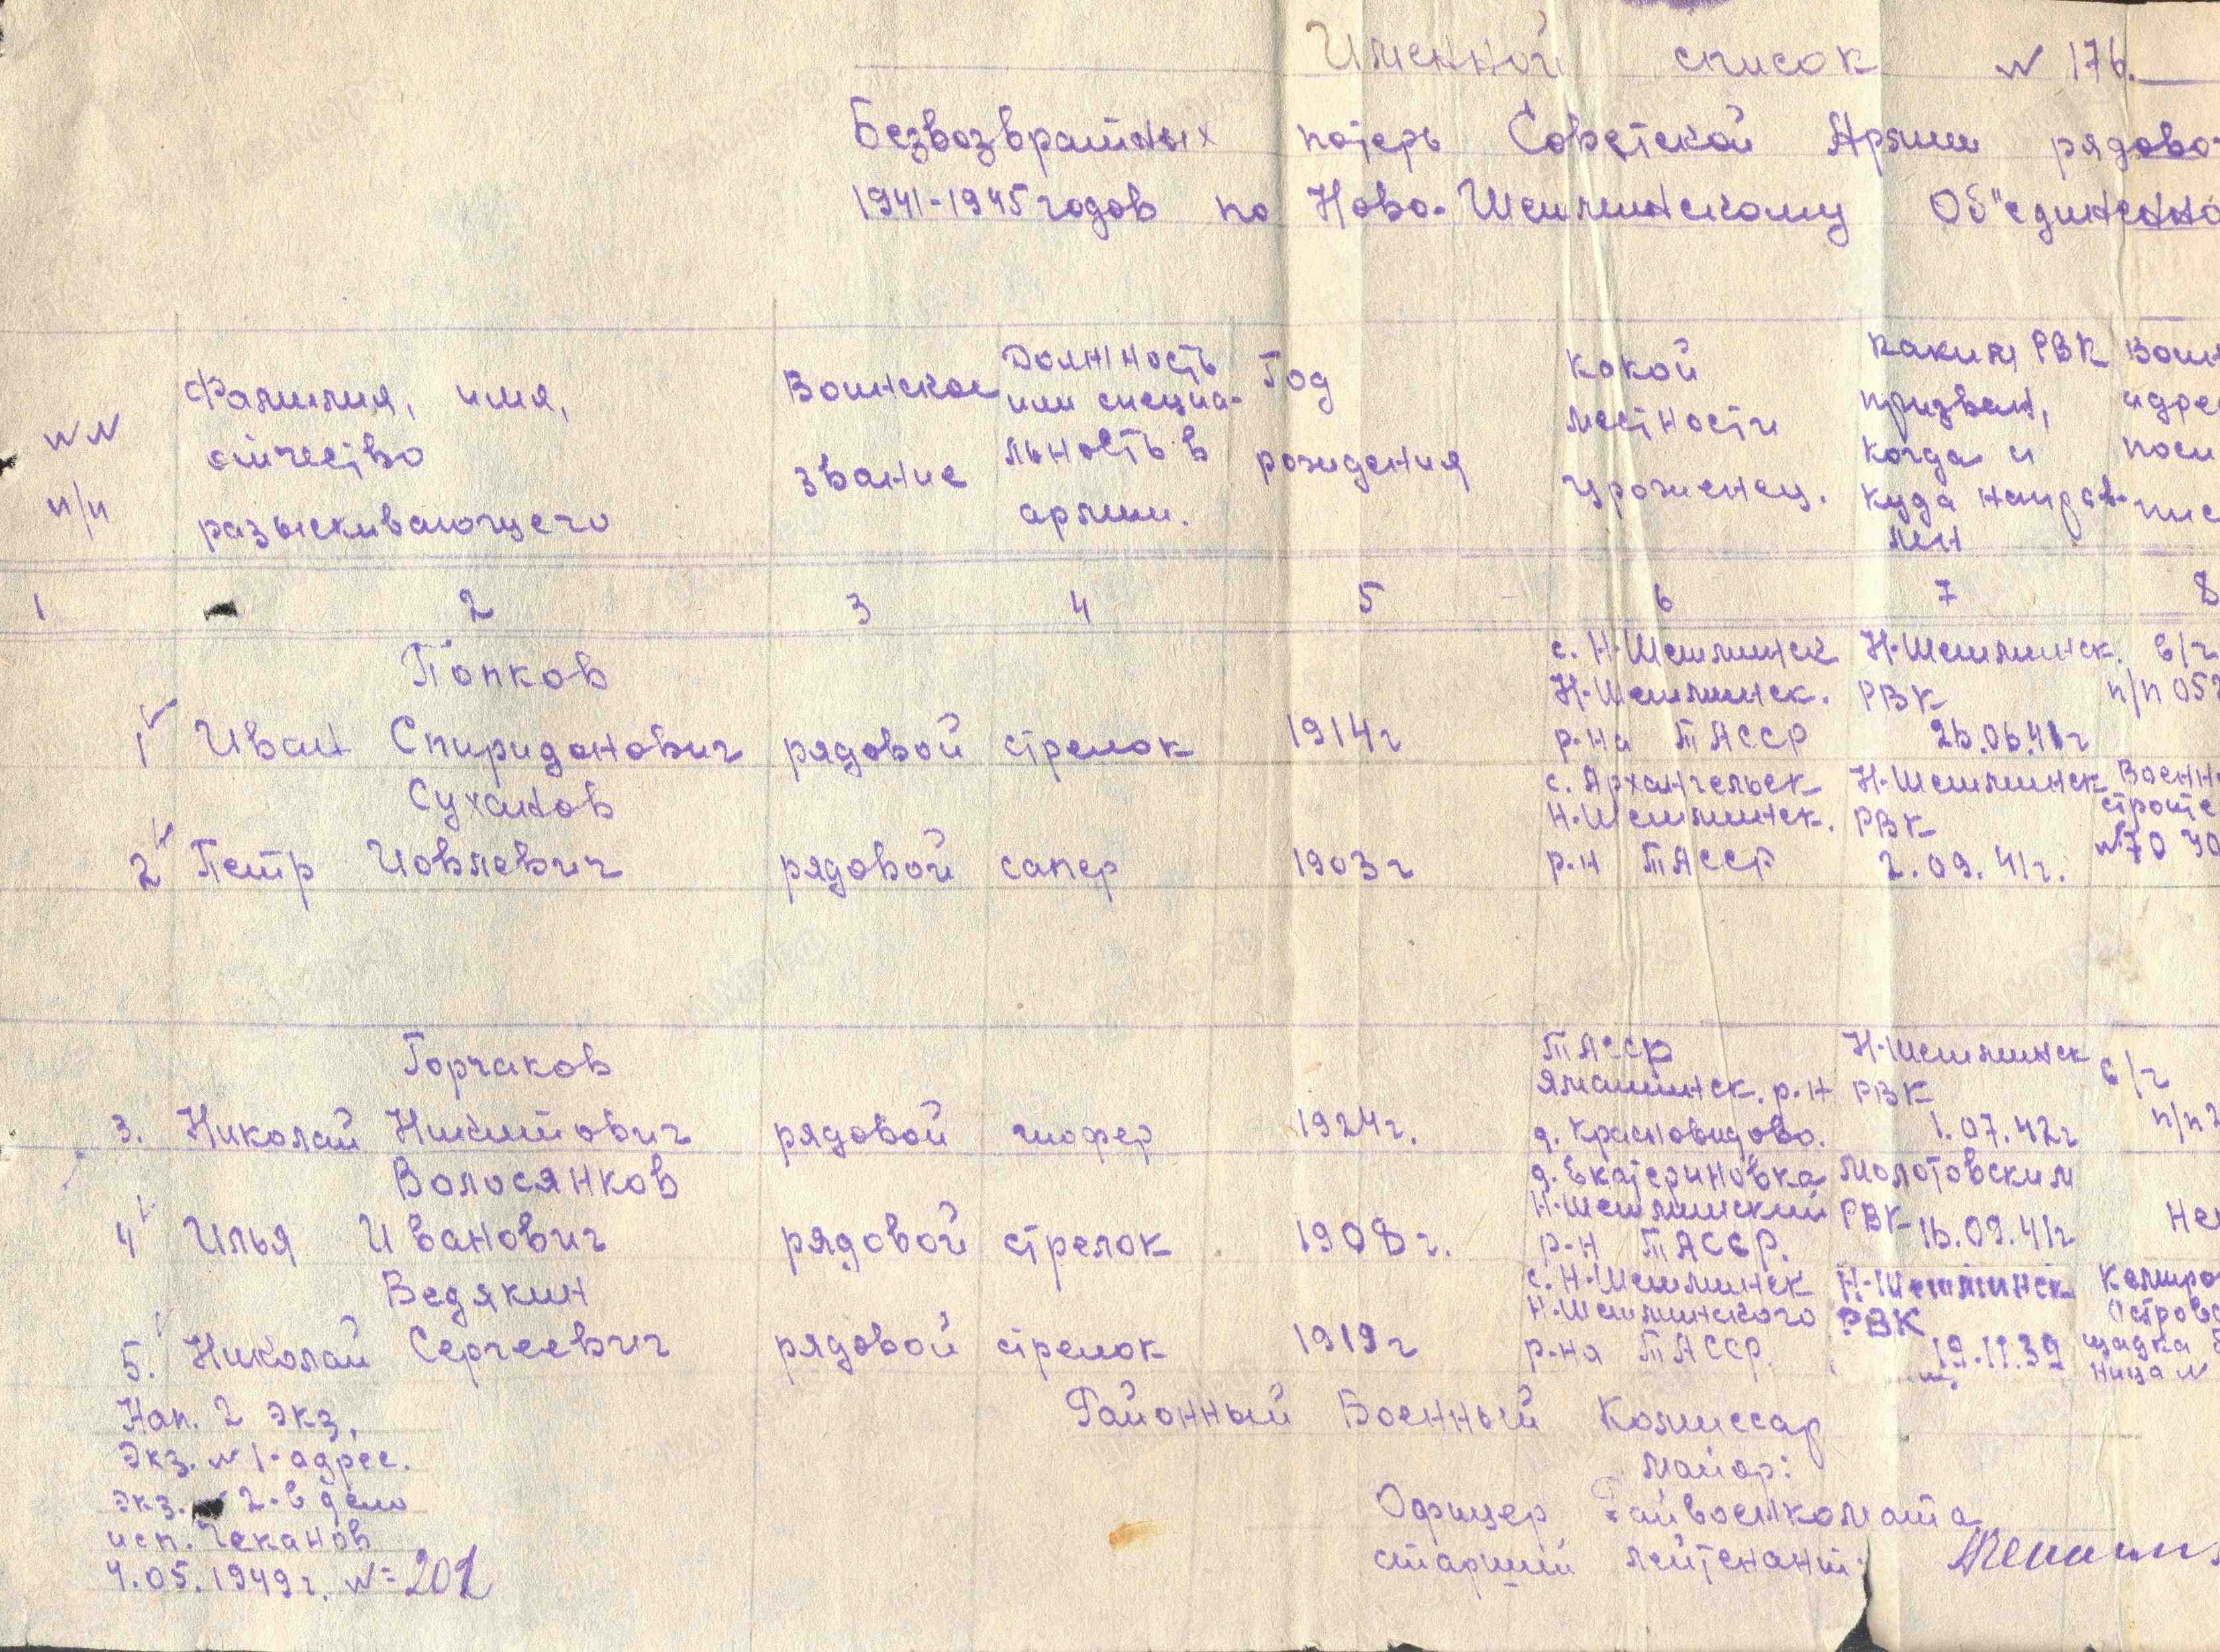 Именной список № 176.
Безвозвратных потерь Советской Армии рядово-
1941-1945 годов по Ново-Шешминскому Об"единенно
№№ п/п
Фамилия, имя,
отчество
разыскивающего
Воинское
звание
Должность
или специа-
льность в
армии.
Год
рождения
какой
местности
уроженец.
каким РВК
призван,
когда и
куда направ-
лен
Воин
адре
посл
пис
1 2 3 4 5 6 7 8
Попков
1 Иван Спиридонович рядовой стрелок 1914г
с. Н-Шешминск
Н-Шешминск.
р-на ТАССР
Н-Шешминск.
РВК
26.06.41г
в/ч
п/п 052
Суханов
2 Петр Иовлевич рядовой сапер 1903г
с. Архангельск
Н-Шешминск.
р-н ТАССР
Н-Шешминск
РВК
2.09.41г.
Военн
строите
№70
Горчаков
3. Николай Никитович рядовой шофер 1924г.
ТАССР
Ямашинск. р-н
д. Красновидово.
Н-Шешминск
РВК
1.07.42г
с/ч
п/п 2
Волосянков
4 Илья Иванович рядовой стрелок 1908г.
д. Екатериновка
Н-Шешминский
р-н ТАССР.
Молотовским
РВК
16.09.41г
Не
Ведякин
5. Николай Сергеевич рядовой стрелок 1919г
с. Н-Шешминск
Н-Шешминского
р-на ТАССР.
Н-Шешминск
РВК
19.11.39
Островс
щадка
ница №
Нап. 2 экз.
Экз. №1-адрес.
экз. 2-в дело
исп. Чеканов
4.05.1949г. №=201
Районный Военный Комиссар
майор:
Офицер Райвоенкомата
старший лейтенант: